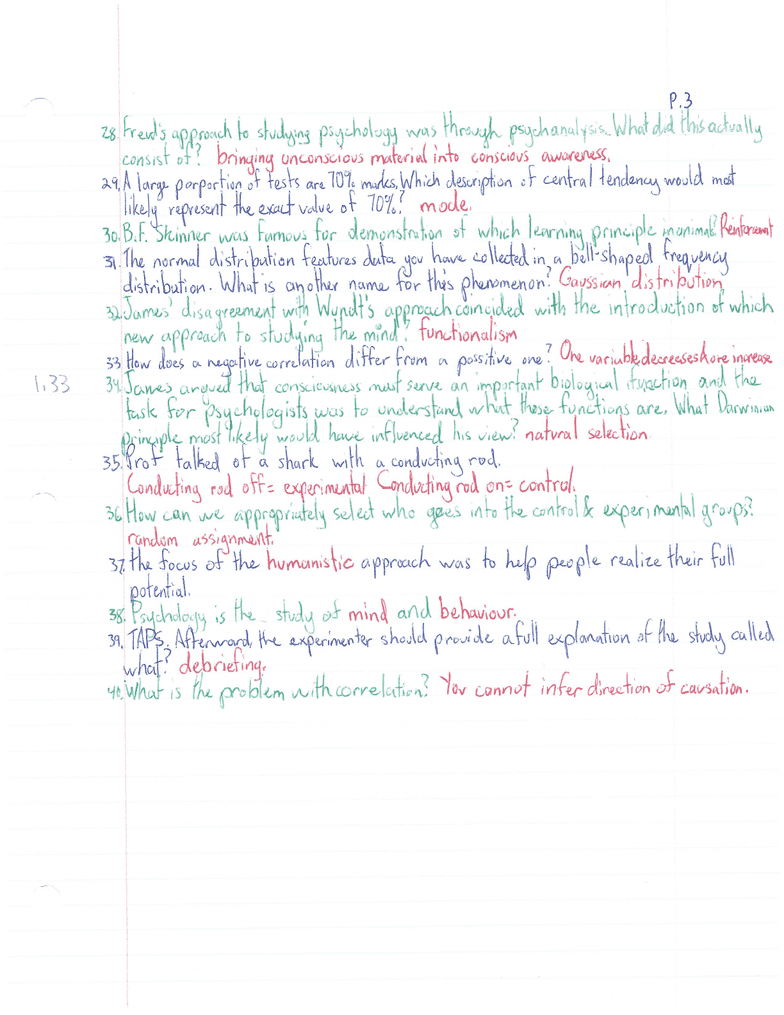 P.3
28. Freud's approach to studying psychology was through psychanalysis. What did this actually
consist of? bringing unconscious material into conscious awareness.
29. A large porportion of tests are 70% marks. Which description of central tendency would most
likely represent the exact value of 70%? mode.
30. B.F. Skinner was famous for demonstration of which learning principle in animals? Reinforcement
31. The normal distribution features data you have collected in a bell-shaped frequency
distribution. What is another name for this phenomenon? Gaussian distribution
32. James' disagreement with Wundt's approach coincided with the introduction of which
new approach to studying the mind? functionalism
33 How does a negative correlation differ from a possitive one? One variable decreases & one increase
1.33
34. James argued that consciousness must serve an important biological function and the
task for psychologists was to understand what those functions are. What Darwinian
principle most likely would have influenced his view? natural selection
35. Prof talked of a shark with a conducting rod.
Conducting rod off = experimental Conducting rod on = control.
36 How can we appropriately select who goes into the control & experimental groups?
random assignment.
37. the focus of the humanistic approach was to help people realize their full
potential.
38. Psychology is the study of mind and behaviour.
39. TAPS. Afterward, the experimenter should provide a full explanation of the study called
what? debriefing.
40. What is the problem with correlation? You cannot infer direction of causation.